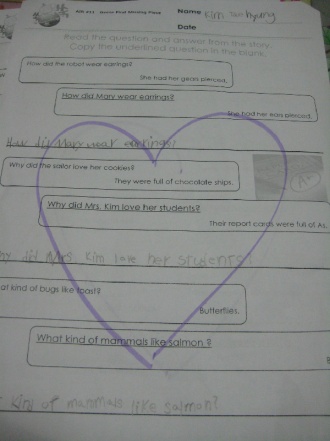 Name Kim Tae Kyung
Date
Read the question and answer from the story.
Copy the underlined question in the blank.
How did the robot wear earrings?
She had her gears pierced.
How did Mary wear earrings?
She had her ears pierced.
How did Mary wear earrings?
Why did the sailor love her cookies?
They were full of chocolate ships.
Why did Mrs. Kim love her students?
Their report cards were full of As.
did Mrs. Kim love her students?
kind of bugs like toast?
Butterflies.
What kind of mammals like salmon ?
kind of mammals like salmon?